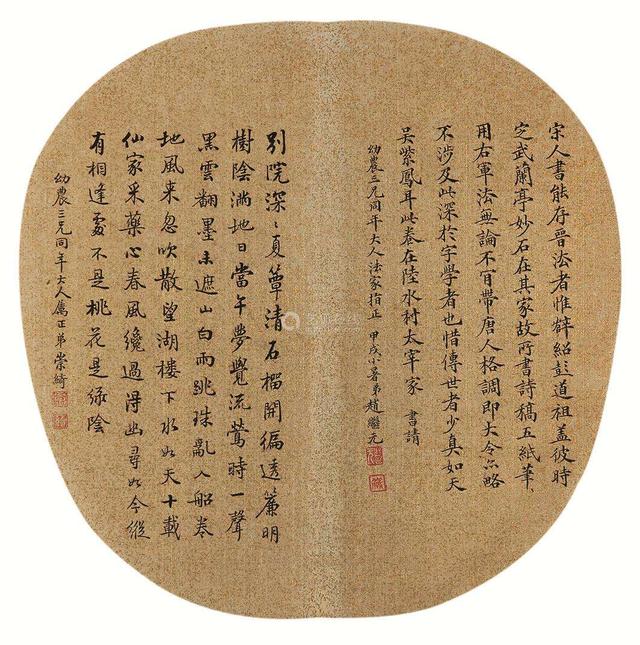 宋人書能存晉法者惟薛紹彭道祖蓋彼時
定武蘭亭妙石在其家故所書詩稿五紙筆筆
用右軍法無論不肯帶唐人格調即大令亦略
不涉及此深於字學者也惜傳世者少真如天
吳紫鳳耳此卷在陸水村太宰家 書請
幼農三兄同年大人法家指正 甲戌小暑弟趙繼元
別院深深夏簟清石榴開徧透簾明
樹陰滿地日當午夢覺流鶯時一聲
黑雲翻墨未遮山白雨跳珠亂入船卷
地風來忽吹散望湖樓下水如天十載
仙家采藥心春風纔過得幽尋如今縱
有相逢處不是桃花是綠陰
幼農三兄同年大人屬正弟崇綺